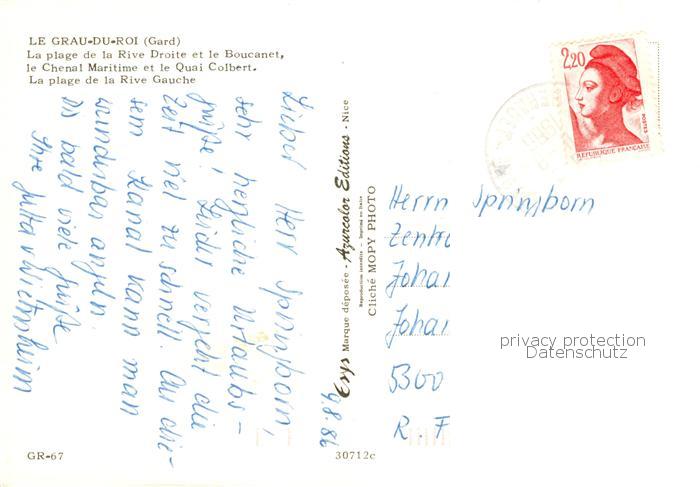 LE GRAU-DU-ROI (Gard)
La plage de la Rive Droite et le Boucanet,
le Chenal Maritime et le Quai Colbert.
La plage de la Rive Gauche
9.8.86
Lieber Herr Springborn,
sehr herzliche Urlaubs-
grüße! Leider vergeht die
Zeit viel zu schnell. An die-
sem Kanal kann man
wunderbar angeln.
Bis bald viele Grüße
Ihre Jutta
Erys Marque déposée - Azurcolor Editions - Nice
Reproduction interdite - Imprimé en Italie
Cliché MOPY PHOTO
2,20
POSTES
REPUBLIQUE FRANÇAISE
Herrn Springborn
Zentr
Johan
Johan
5300
R. F
privacy protection
Datenschutz
GR-67
30712c